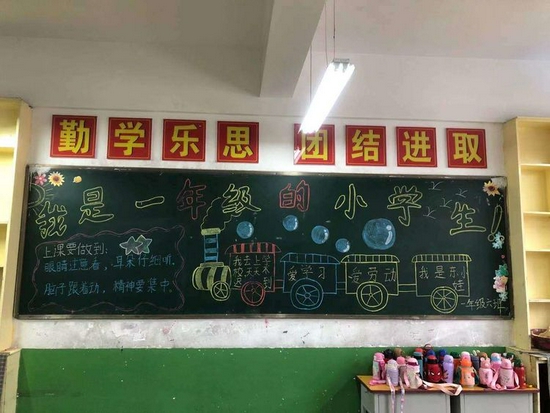 勤学乐思 团结进取
我是一年级的小学生!
上课要做到:
眼睛注意看,耳朵仔细听,
脑子跟着动,精神要集中。
我去上学
校天天不
迟到
爱学习
爱劳动
我是东小
娃
一年级六班